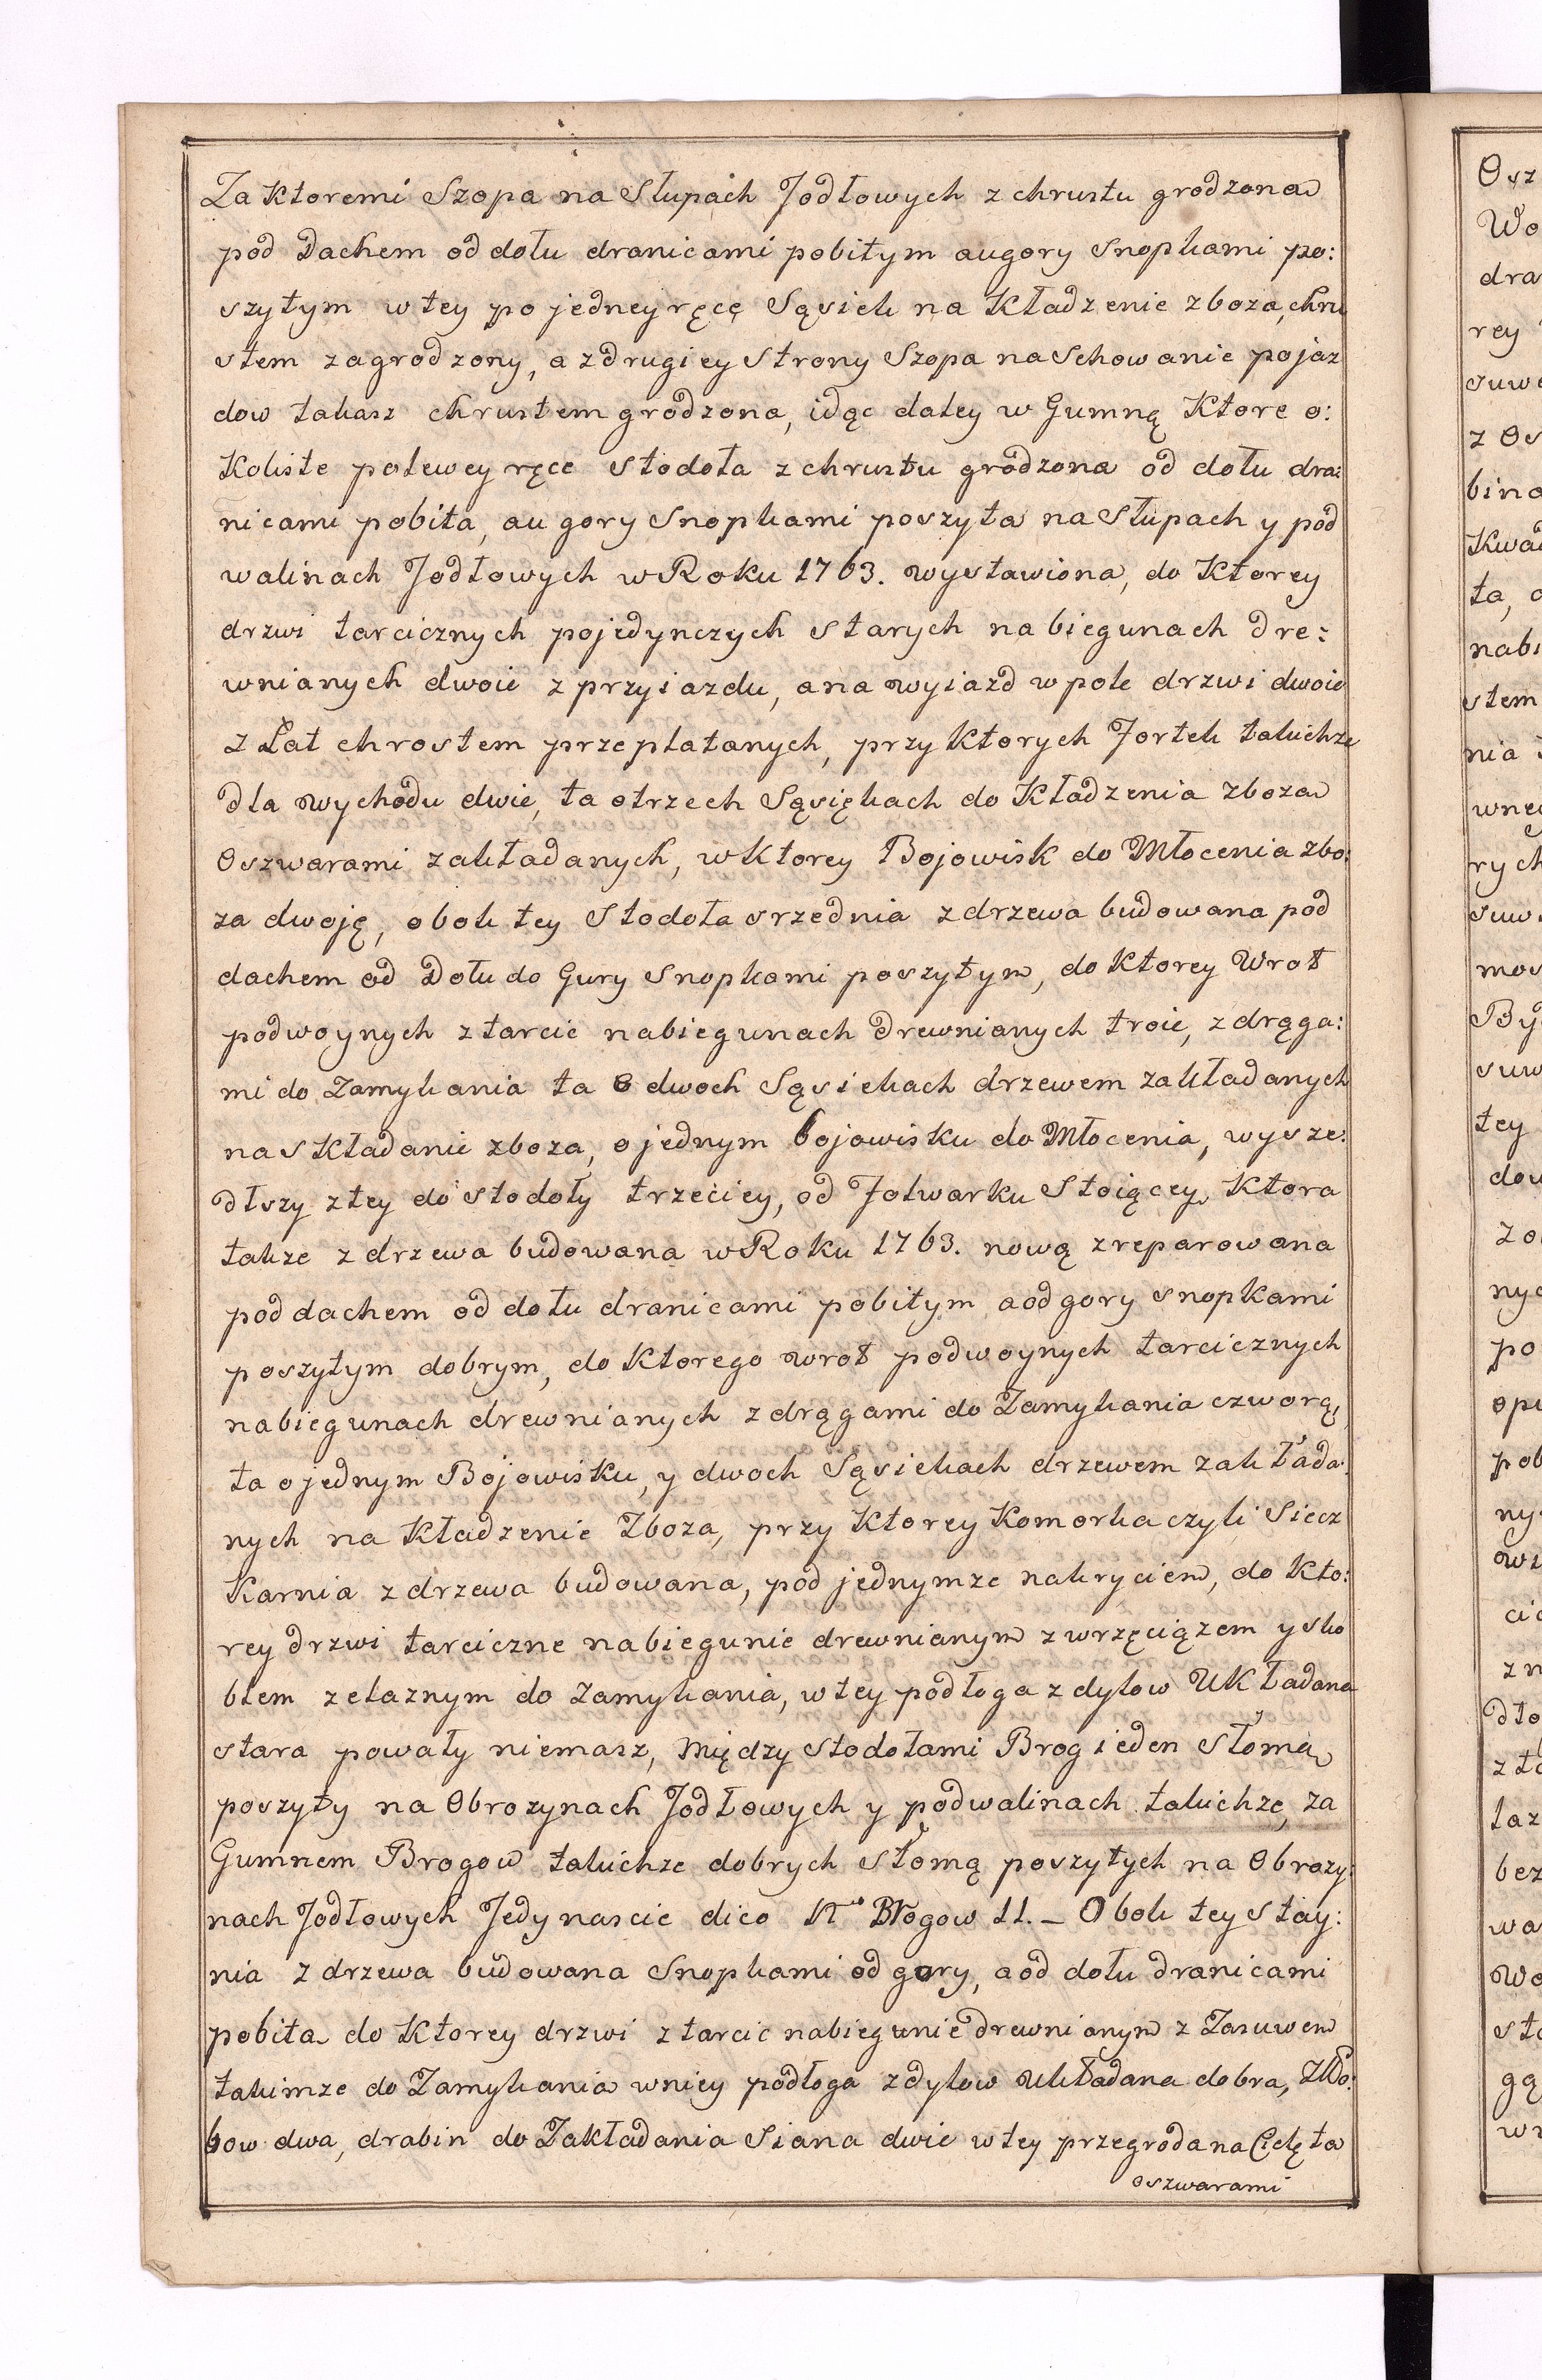 Za Ktoremi Szopa na Słupach Jodłowych z chrustu grodzona
pod Dachem od dołu dranicami pobitym augory Snopkami po:
szytym w tey po jedney ręcę Sąsiek na Kładzenie zboza, chru
stem zagrodzony, a z drugiey Strony Szopa na Schowanie pojaz
dow takasz chrustem grodzona, idąc daley w Gumną Ktore o:
Koliste polewey ręce Stodoła z chrustu grodzona od dołu dra:
nicami pobita, au gory Snopkami poszyta na Słupach y pod
walinach Jodłowych w Roku 1763. wystawiona, do Ktorey
drzwi tarcicznych pojedynczych starych na biegunach dre:
wnianych dwoie z przyiazdu, ana wyiazd w pole drzwi dwoie
z Łat chrostem przeplatanych, przy Ktorych Fortek takichze
dla wychodu dwie, ta o trzech Sąsiękach do Kładzenia zboza
Oszwarami zakładanych, w Ktorey Bojowisk do Młocenia zbo:
za dwoję, obok tey Stodoła srzednia z drzewa budowana pod
dachem od Dołu do Gury Snopkami poszytym, do Ktorey Wrot
podwoynych z tarcic nabiegunach Drewnianych troie, z drąga:
mi do Zamykania ta o dwoch Sąsiekach drzewem zakładanych
na Składanie zboza, o jednym bojowisku do Młocenia, wysze:
dłszy z tey do stodoły trzeciey, od Folwarku Stoiącey, Ktora
takze z drzewa budowana w Roku 1763. nową zreparowana
pod dachem od dołu dranicami pobitym aod gory snopkami
poszytym dobrym, do Ktorego wrot podwoynych tarcicznych
nabiegunach drewnianych z drągami do Zamykania czworą,
ta o jednym Bojowisku, y dwoch Sąsiekach drzewem zakłada:
nych na Kładzenie Zboza, przy Ktorey Komorka czyli Siecz
Karnia z drzewa budowana, pod jednymze nakryciem, do Kto:
rey drzwi tarciczne nabiegunie drewnianym z wrzęciązem y sko
blem zelaznym do zamykania, w tey podłoga z dylow Układana
stara powały niemasz, Między stodołami Brog ieden Słomą
poszyty na Obrozynach Jodłowych y podwalinach takichze, za
Gumnem Brogow takichze dobrych słomą poszytych na Obrozy:
nach Jodłowych Jedynascie dico Nro Brogow 11. _ Obok tey stay:
nia z drzewa budowana Snopkami od gory, a od dołu dranicami
pobita do Ktorey drzwi z tarcic nabiegunie drewnianym z Zasuwem
takimze do Zamykania wniey podłoga z dylow układana dobra, Zło:
bow dwa, drabin do Zakładania Siana dwie w tey przegroda na Cielęta
oszwarami
Osz
Wo
dra
rey
suwe
z Os
bina
Kwad
ta, o
nabi
stem
nia
wney
rych
suw
mos
Byd
suw
tey
dow
zo
nyc
po
opu
pob
ny
wi
cio
zn
dło
z ta
laz
bez
wa
Wo
sto
gą
wr